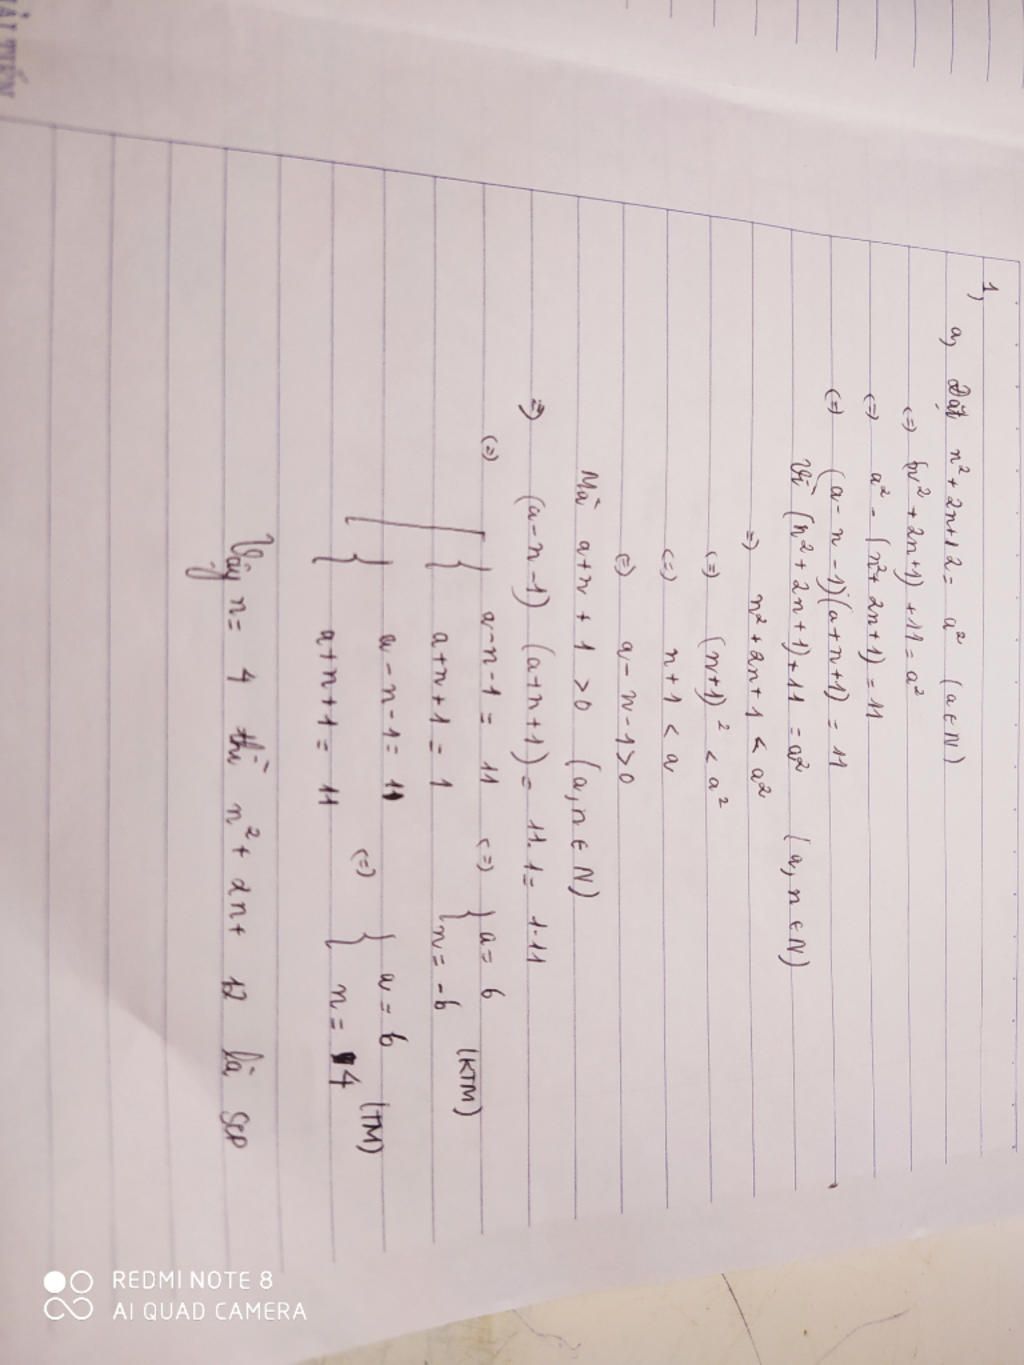 1,
a, Đặt n² + 2n + 12 = a² (a ∈ N)
(=) (n² + 2n + 1) + 11 = a²
(=) a² - (n² + 2n + 1) = 11
(=) (a - n - 1)(a + n + 1) = 11
Vì (n² + 2n + 1) + 11 = a² (a, n ∈ N)
=) n² + 2n + 1 < a²
(=) (n+1)² < a²
(=) n + 1 < a
(=) a - n - 1 > 0
Mà a + n + 1 > 0 (a, n ∈ N)
=) (a - n - 1) (a + n + 1) = 11.1 = 1.11
(=) [ { a - n - 1 = 11 (=) { a = 6
a + n + 1 = 1 n = -6 (KTM)
{ a - n - 1 = 1 (=) { a = 6
a + n + 1 = 11 n = 4 (TM)
Vậy n = 4 thì n² + 2n + 12 là SCP
REDMI NOTE 8
AI QUAD CAMERA